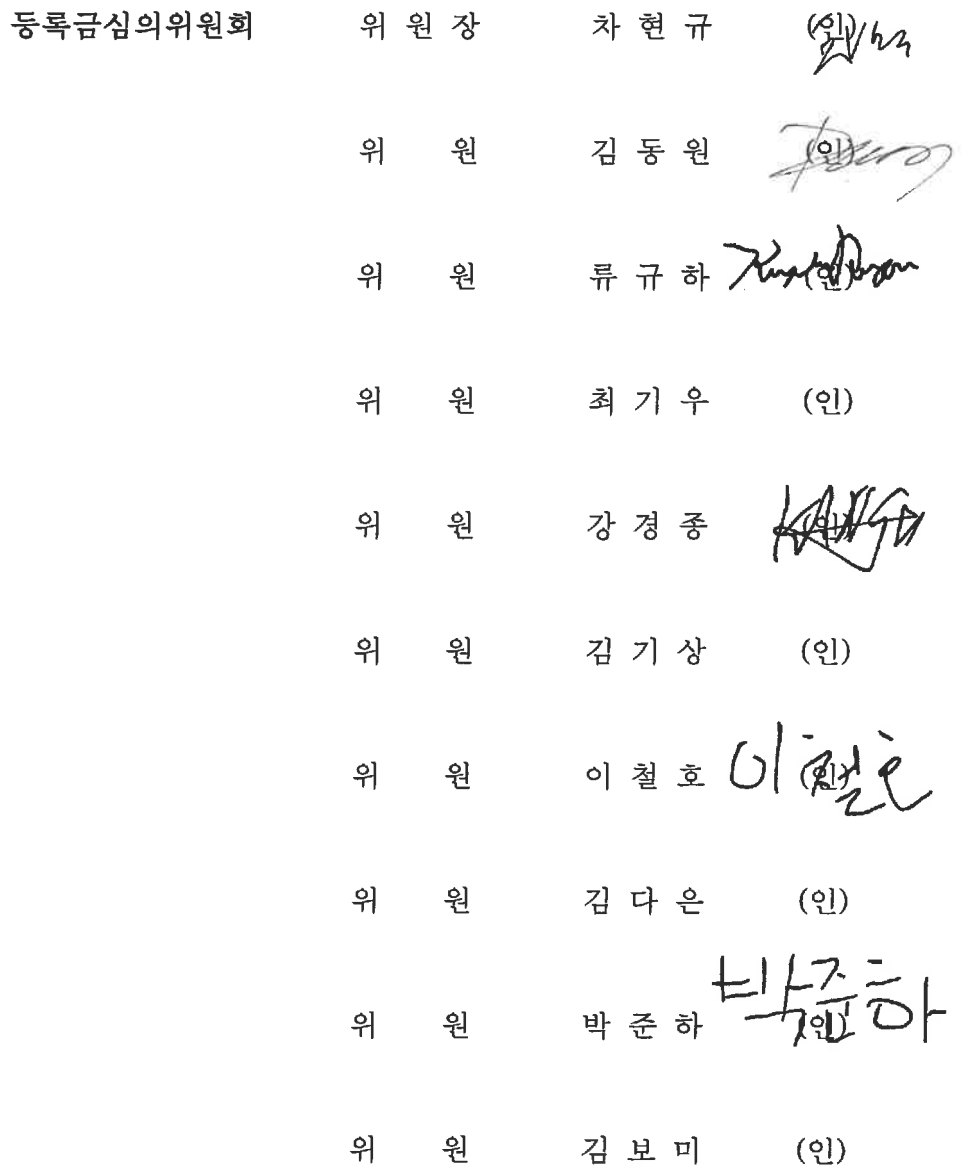 등록금심의위원회 위 원 장 차 현 규 (인)
위 원 김 동 원 (인)
위 원 류 규 하 (인)
위 원 최 기 우 (인)
위 원 강 경 종 (인) KANG
위 원 김 기 상 (인)
위 원 이 철 호 (인) 이철호
위 원 김 다 은 (인)
위 원 박 준 하 (인) 박준하
위 원 김 보 미 (인)